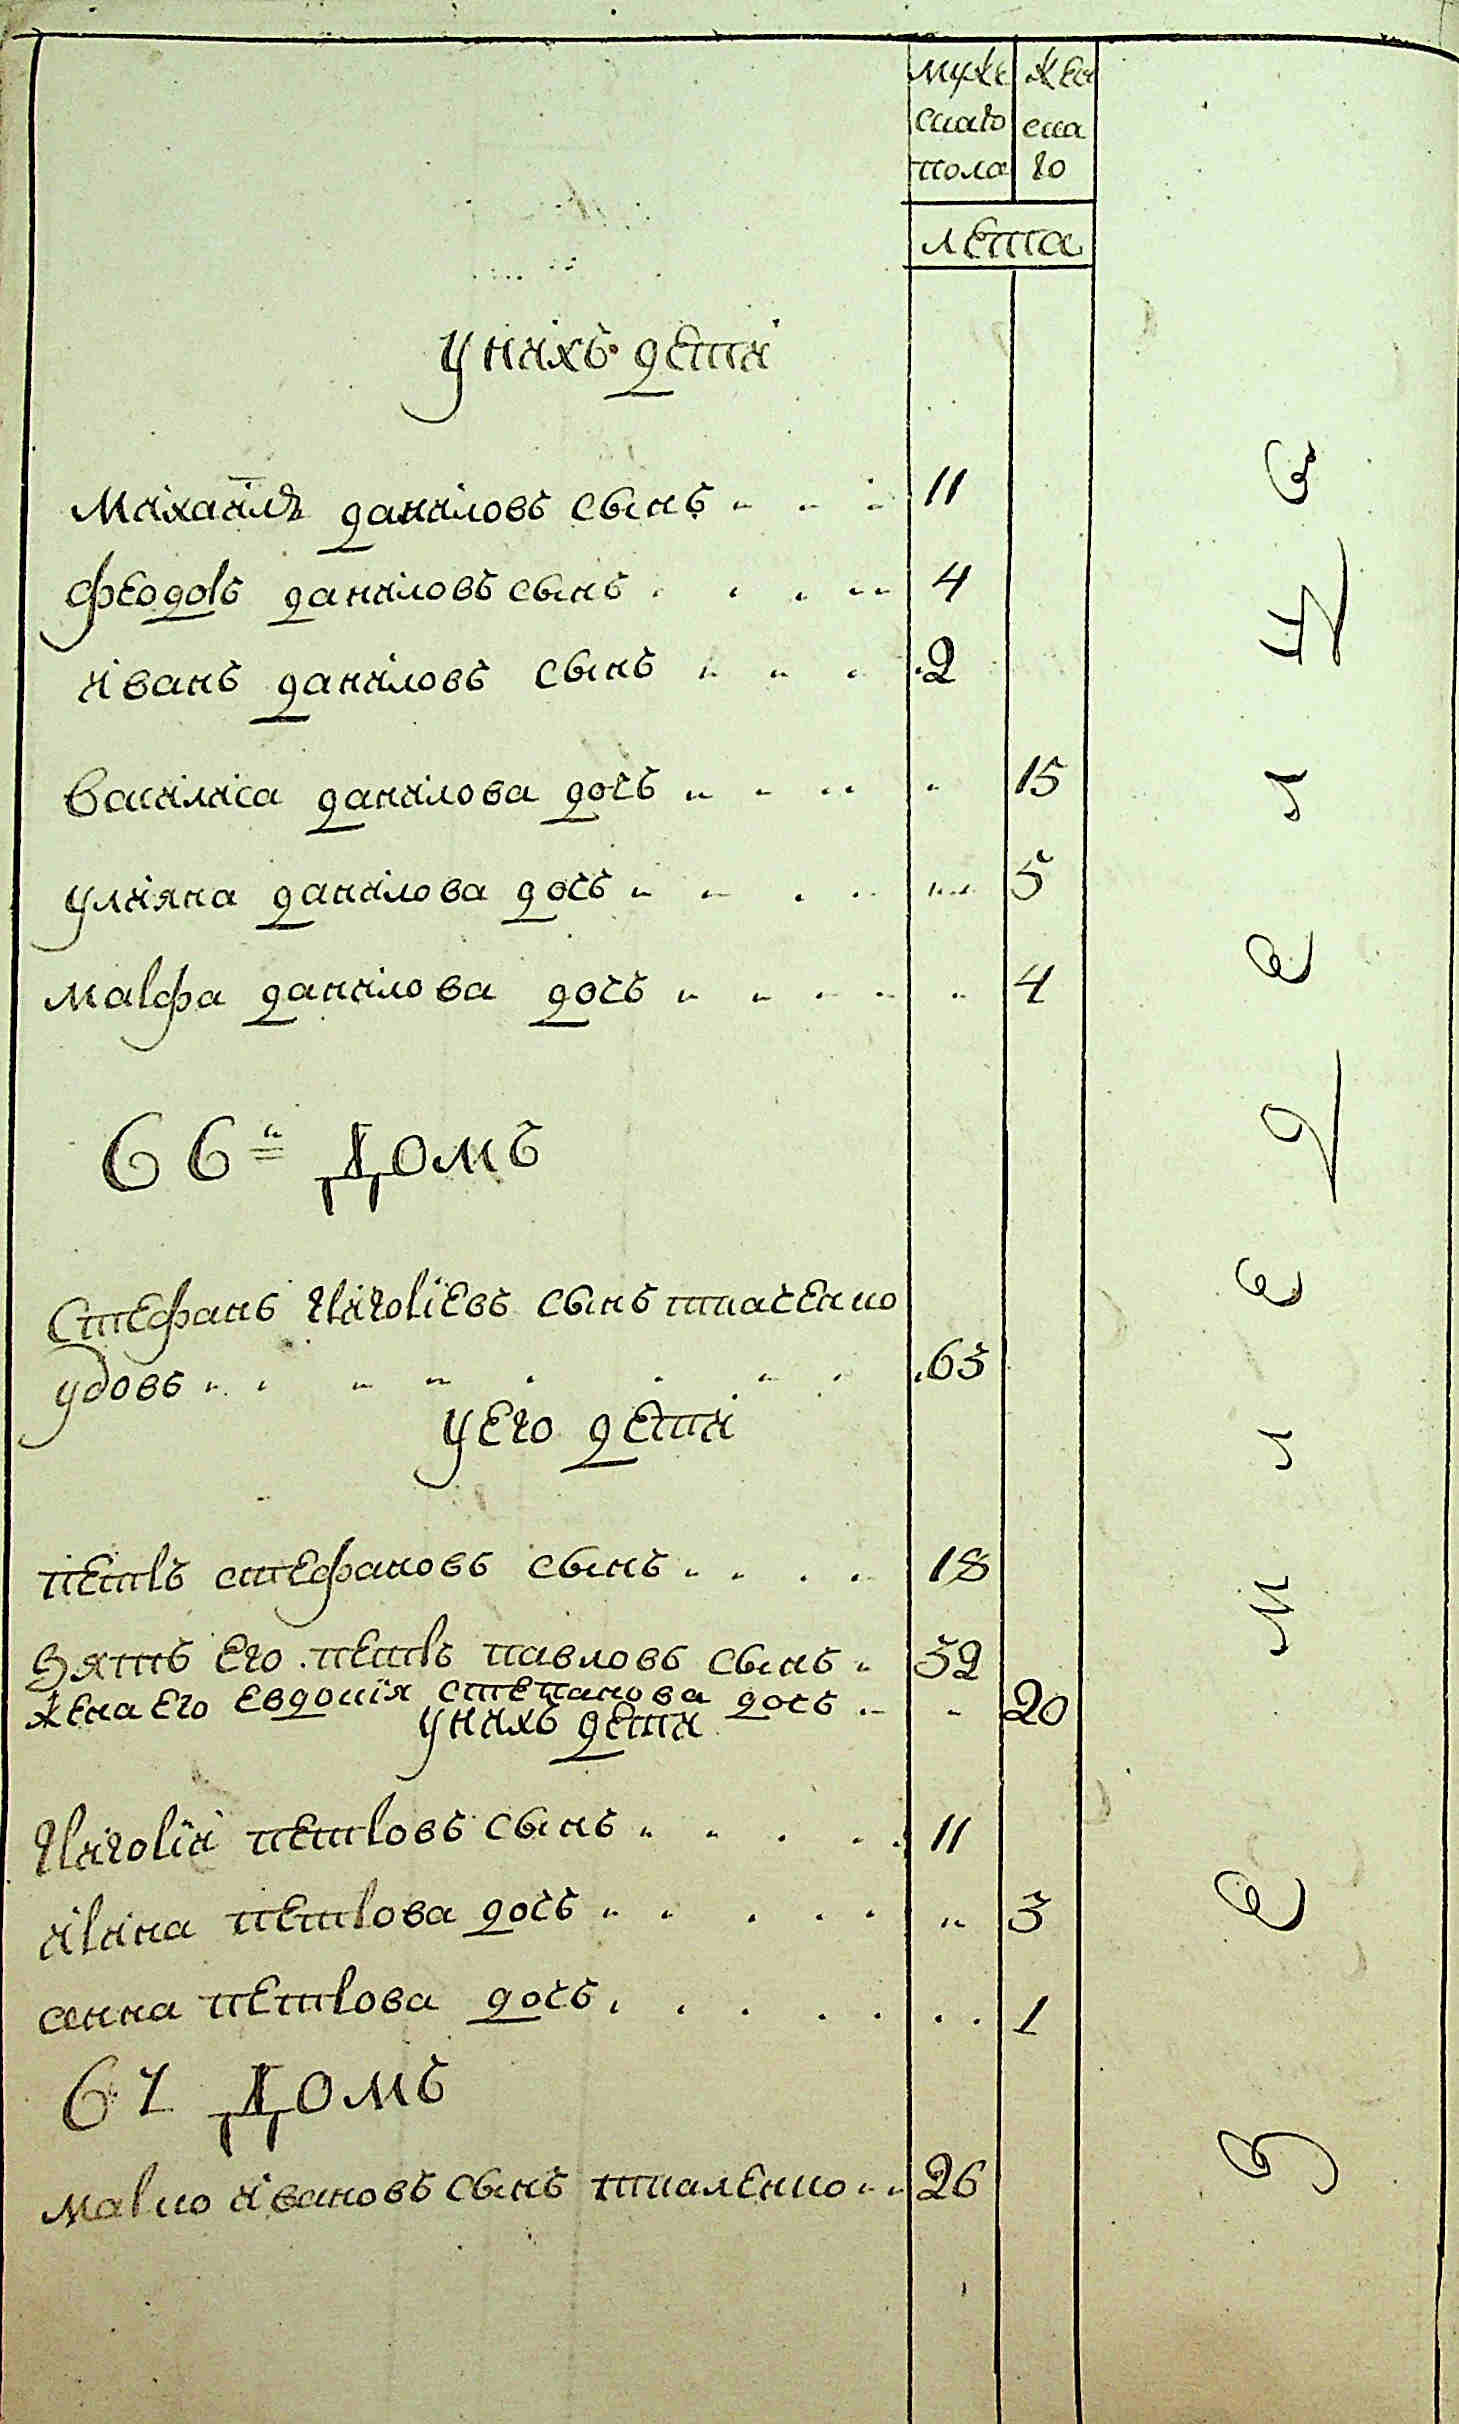 муже женс
скаго ка
пола го
лета
унихъ дети
Михаилъ даниловъ сынъ 11
феодоръ даниловъ сынъ 4
иванъ даниловъ сынъ 2
василиса данилова дочь 15
улияна данилова дочь 5
марфа данилова дочь 4
66й Домъ
Стефанъ Григоріевъ сынъ ткаченко
удовъ 65
уего дети
петръ стефановъ сынъ 18
Зять его петръ павловъ сынъ 32
жена его евдокія степанова дочь 20
унихъ дети
Григорій петровъ сынъ 11
ирина петрова дочь 3
анна петрова дочь 1
67 Домъ
марко ивановъ сынъ ткаленко 26
Земледелцъ